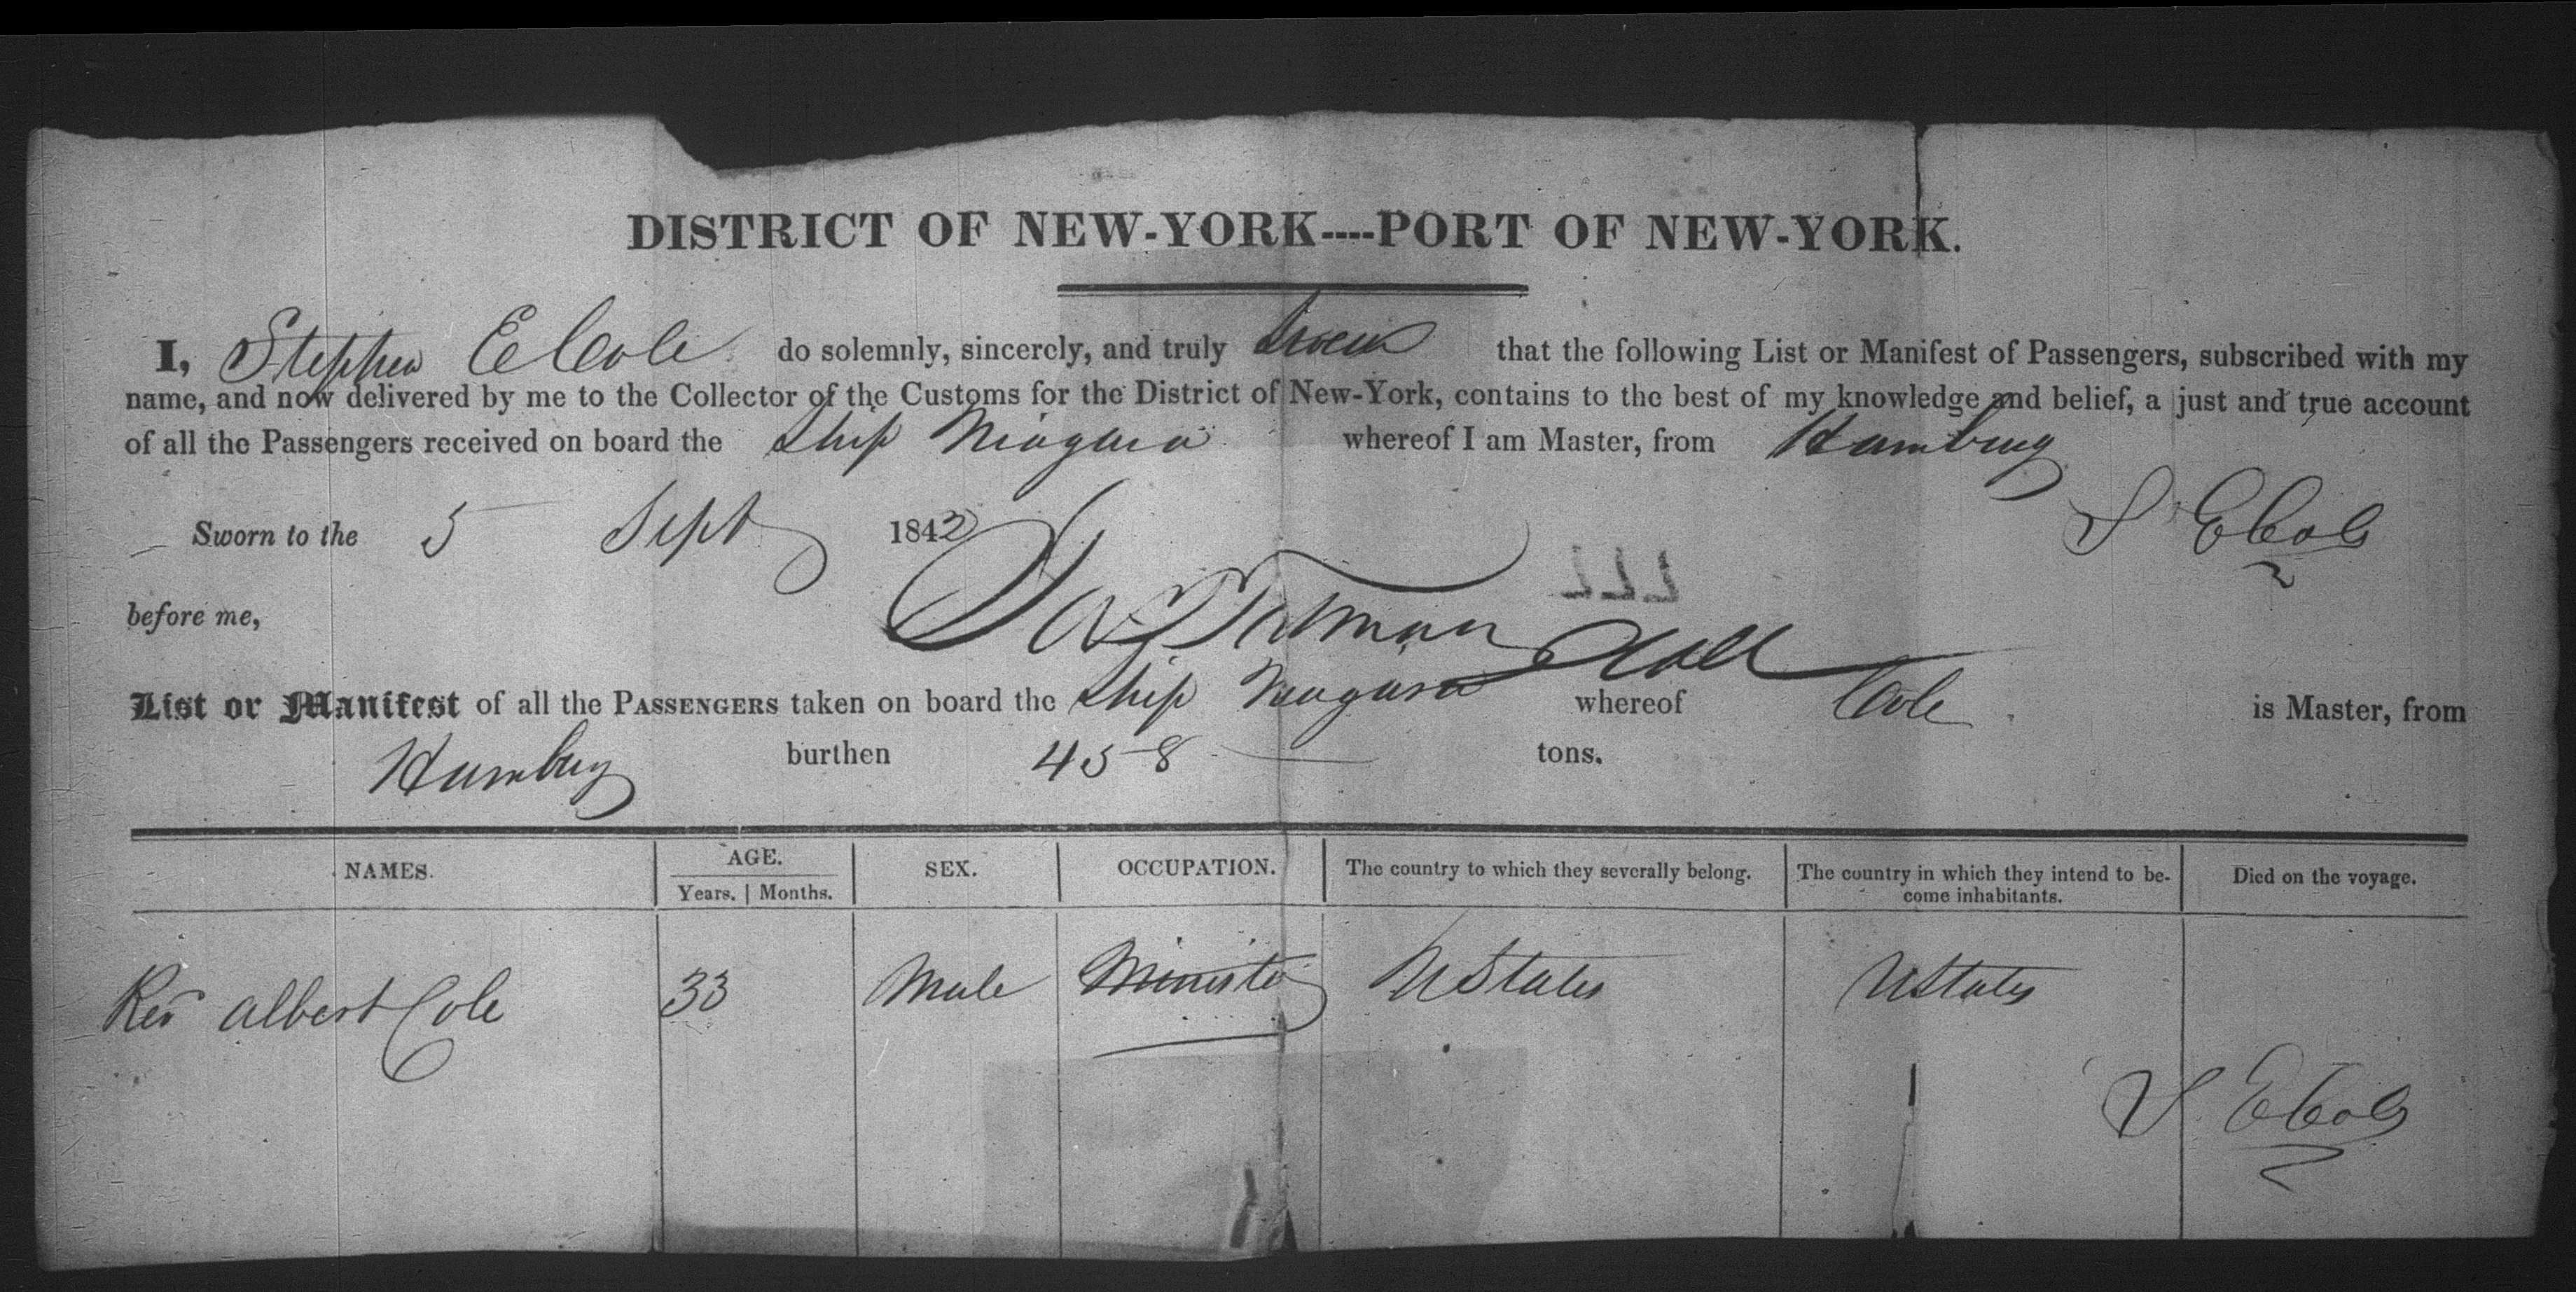 DISTRICT OF NEW-YORK----PORT OF NEW-YORK.
I, Stephen E Cole do solemnly, sincerely, and truly swear that the following List or Manifest of Passengers, subscribed with my
name, and now delivered by me to the Collector of the Customs for the District of New-York, contains to the best of my knowledge and belief, a just and true account
of all the Passengers received on board the Ship Niagara whereof I am Master, from Hamburg
Sworn to the 5 Sept 1842 S E Cole
before me,
List or Manifest of all the PASSENGERS taken on board the Ship Niagara whereof Cole is Master, from
Hamburg burthen 458 tons.
NAMES. AGE. SEX. OCCUPATION. The country to which they severally belong. The country in which they intend to be- Died on the voyage.
Years. | Months. come inhabitants.
Rev Albert Cole 33 Male Minister U States U States
S E Cole